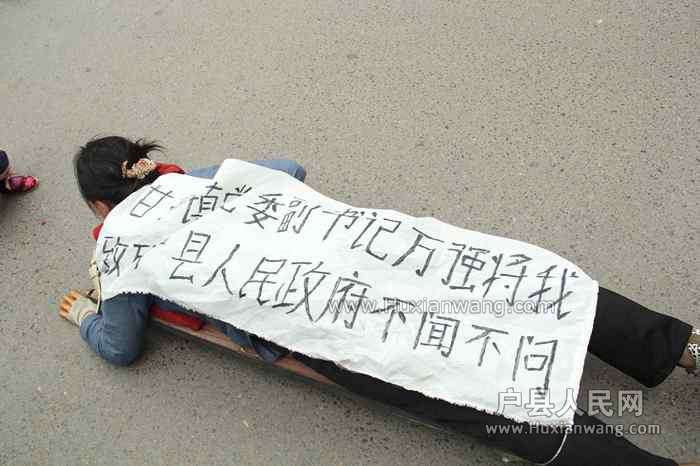 甘 镇党委副书记万强将我
致 县人民政府不闻不问
www.Huxianwang.com
户县人民网
www.Huxianwang.com